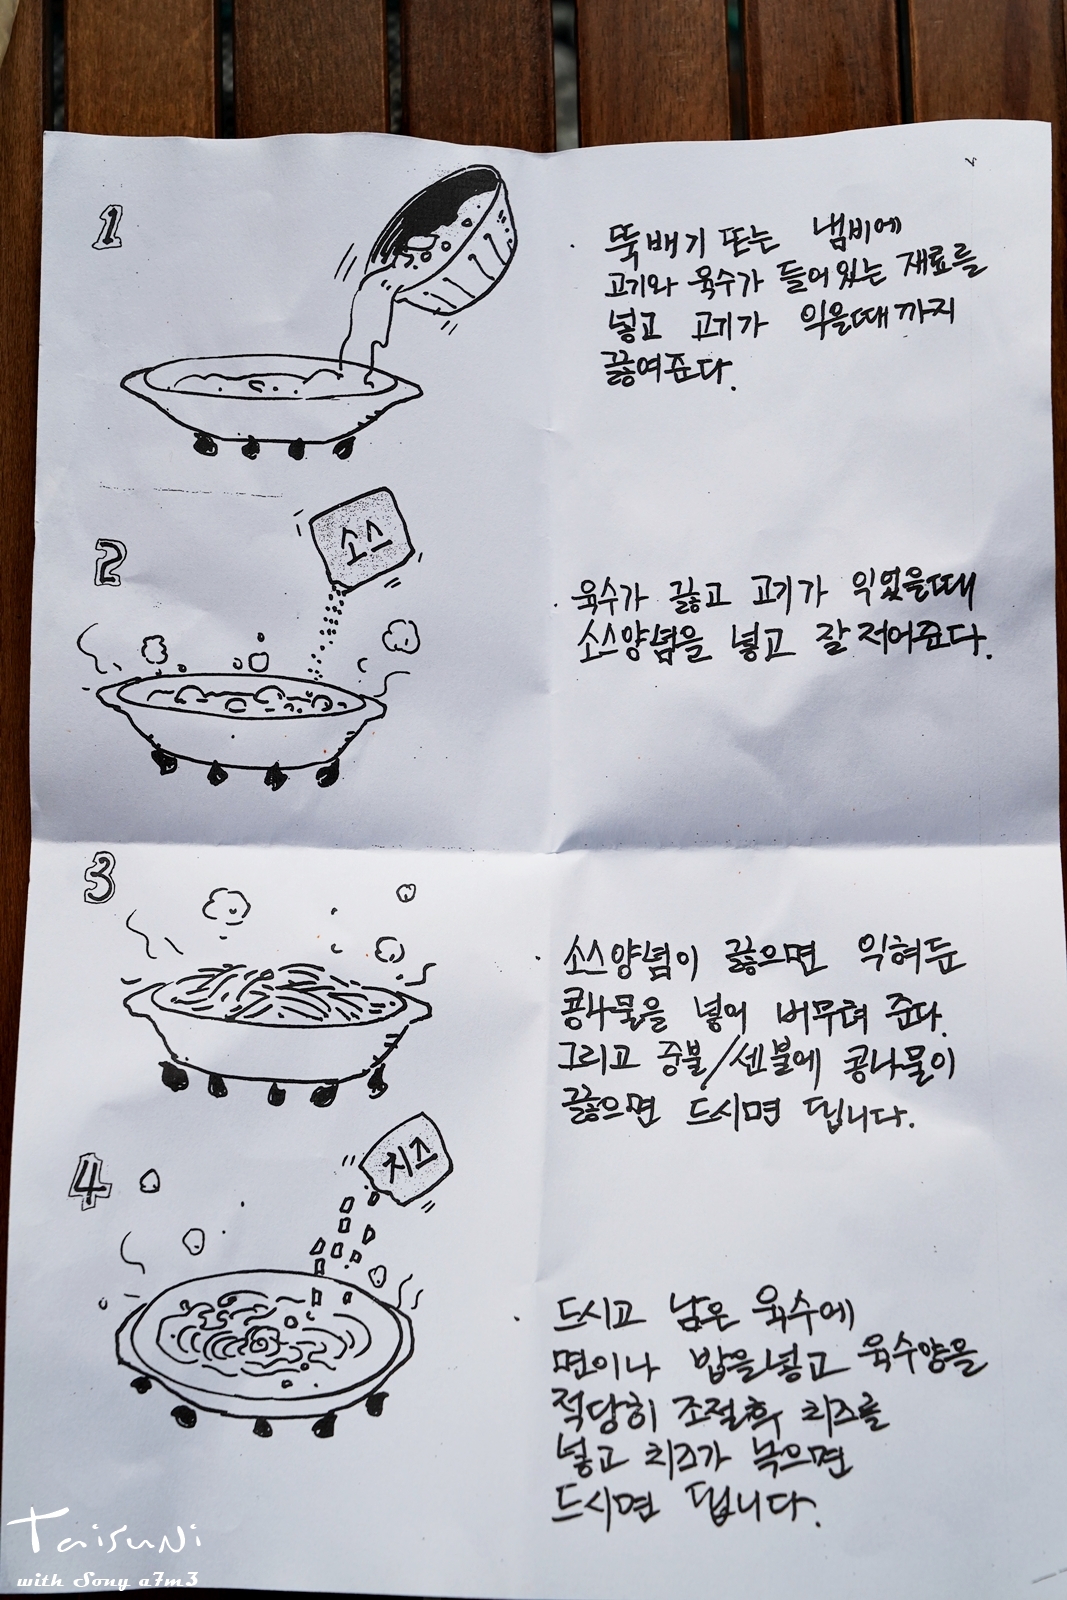 1
뚝배기 또는 냄비에
고기와 육수가 들어있는 재료를
넣고 고기가 익을때까지
끓여준다.
2
소스
육수가 끓고 고기가 익었을때
소스양념을 넣고 잘 저어준다.
3
소스양념이 끓으면 익혀둔
콩나물을 넣어 버무려 준다.
그리고 중불/센불에 콩나물이
끓으면 드시면 됩니다.
4
치즈
드시고 남은 육수에
면이나 밥을넣고 육수양을
적당히 조절후 치즈를
넣고 치즈가 녹으면
드시면 됩니다.
Taisuni
with Sony a7m3